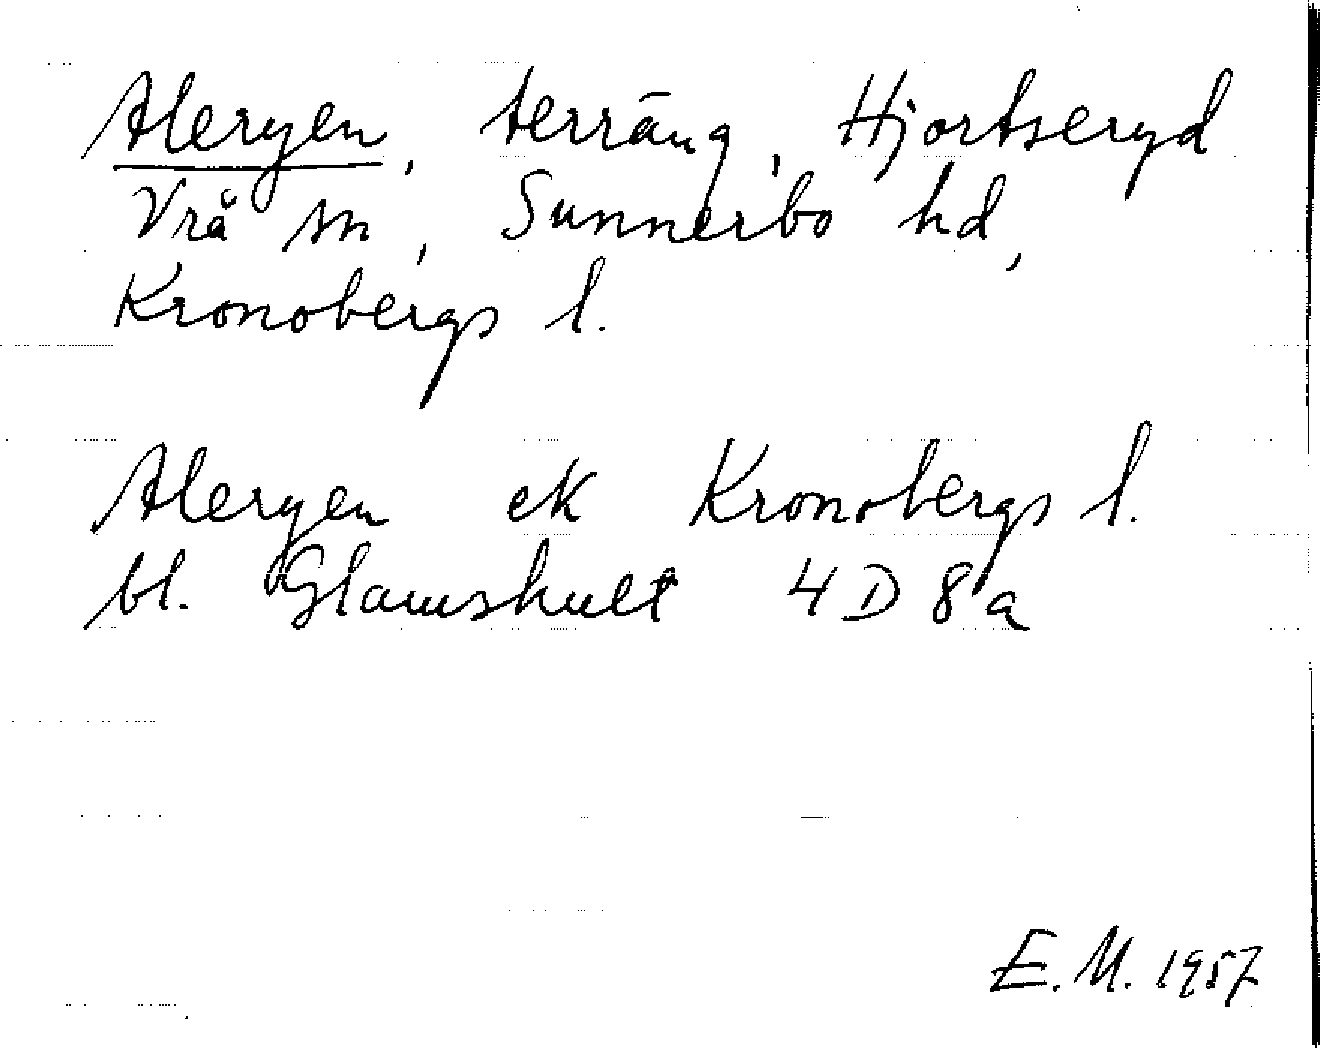 Aleryen, terräng, Hjortseryd
Vrå sn, Sunnerbo hd,
Kronobergs l.
Aleryen ek Kronobergs l.
bl. Glamshult 4 D 8 a
E. M. 1957